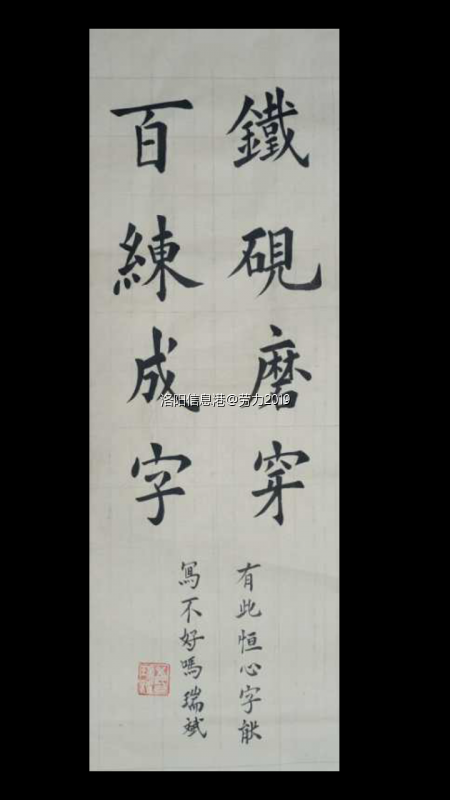 鐵硯磨穿
百練成字
有此恒心字能
寫不好嗎瑞斌
洛阳信息港@劳力2019